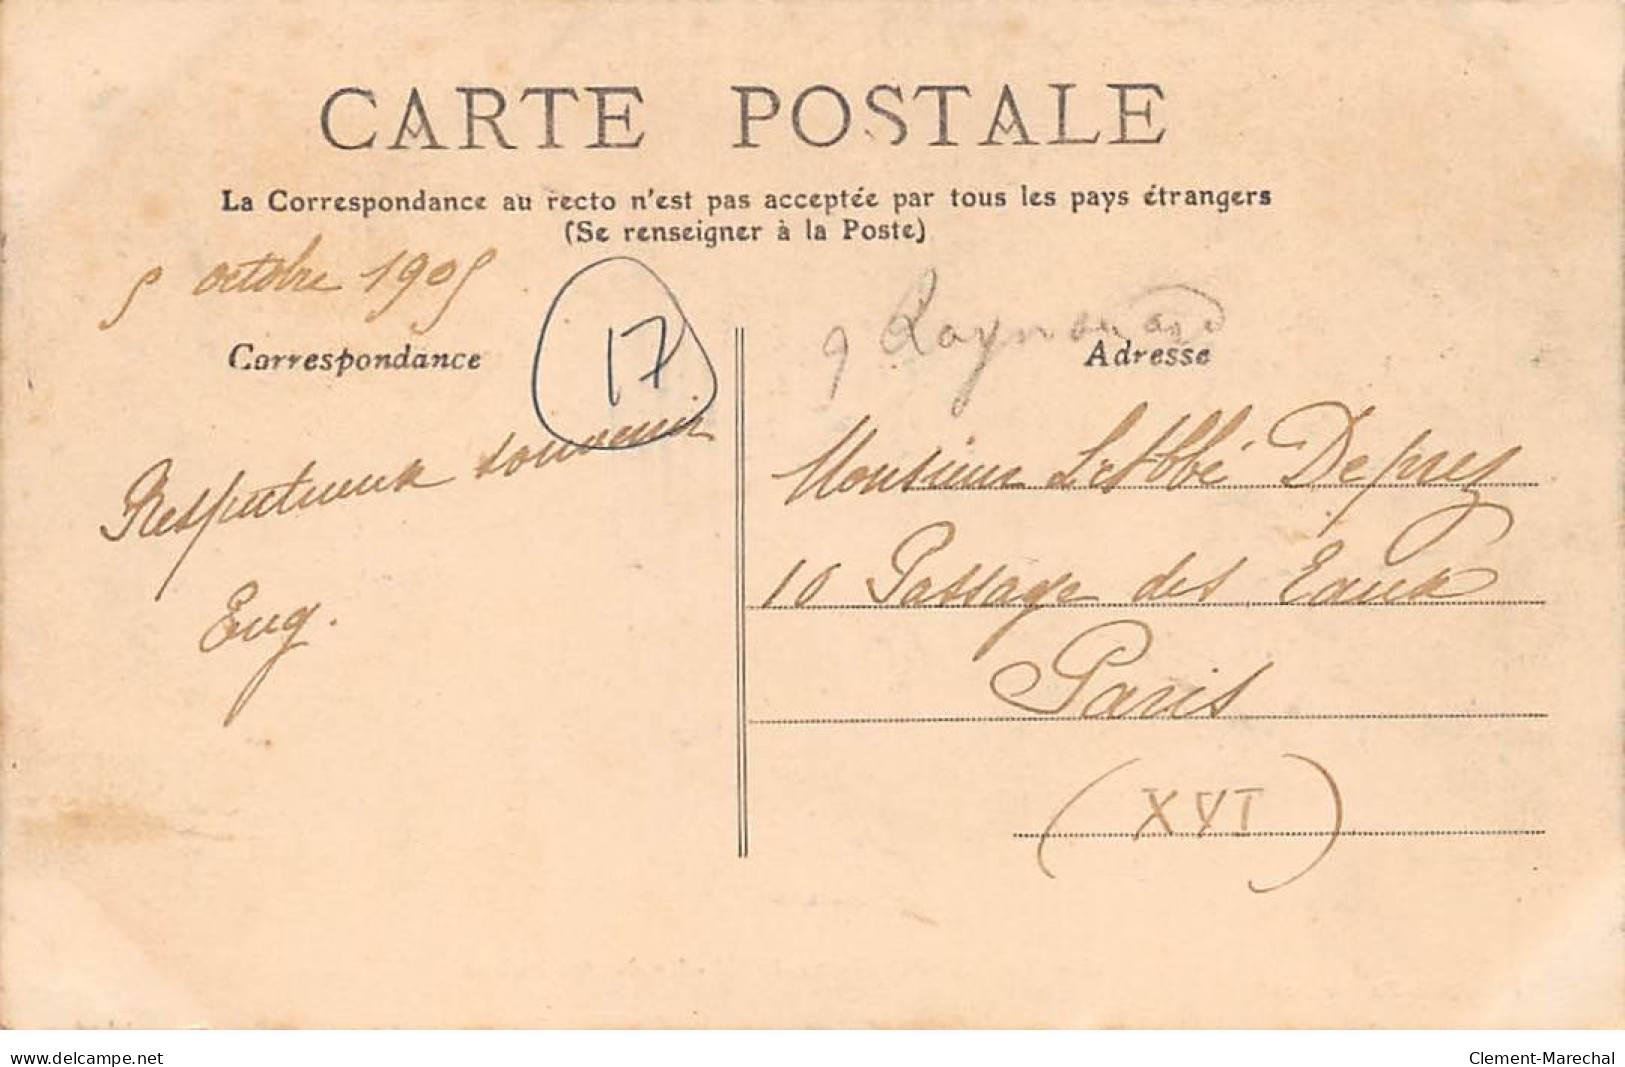 CARTE POSTALE
La Correspondance au recto n'est pas acceptée par tous les pays étrangers
(Se renseigner à la Poste)
5 octobre 1905
17
Correspondance
Respectueux souvenir
Eug.
9 Raynouard
Adresse
Monsieur L'Abbé Deprez
10 Passage des Eaux
Paris
(XVI)
www.delcampe.net
Clement-Marechal